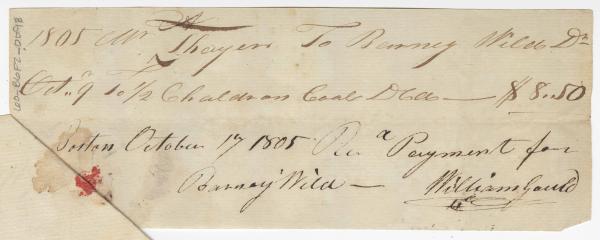 1805 Mr Thayer To Barney Wild Dr
Oct. 9 To 1/2 Chaldron Coal Dld — $8.50
Boston October 17 1805 Recd Payment for
Barney Wild — William Gauld